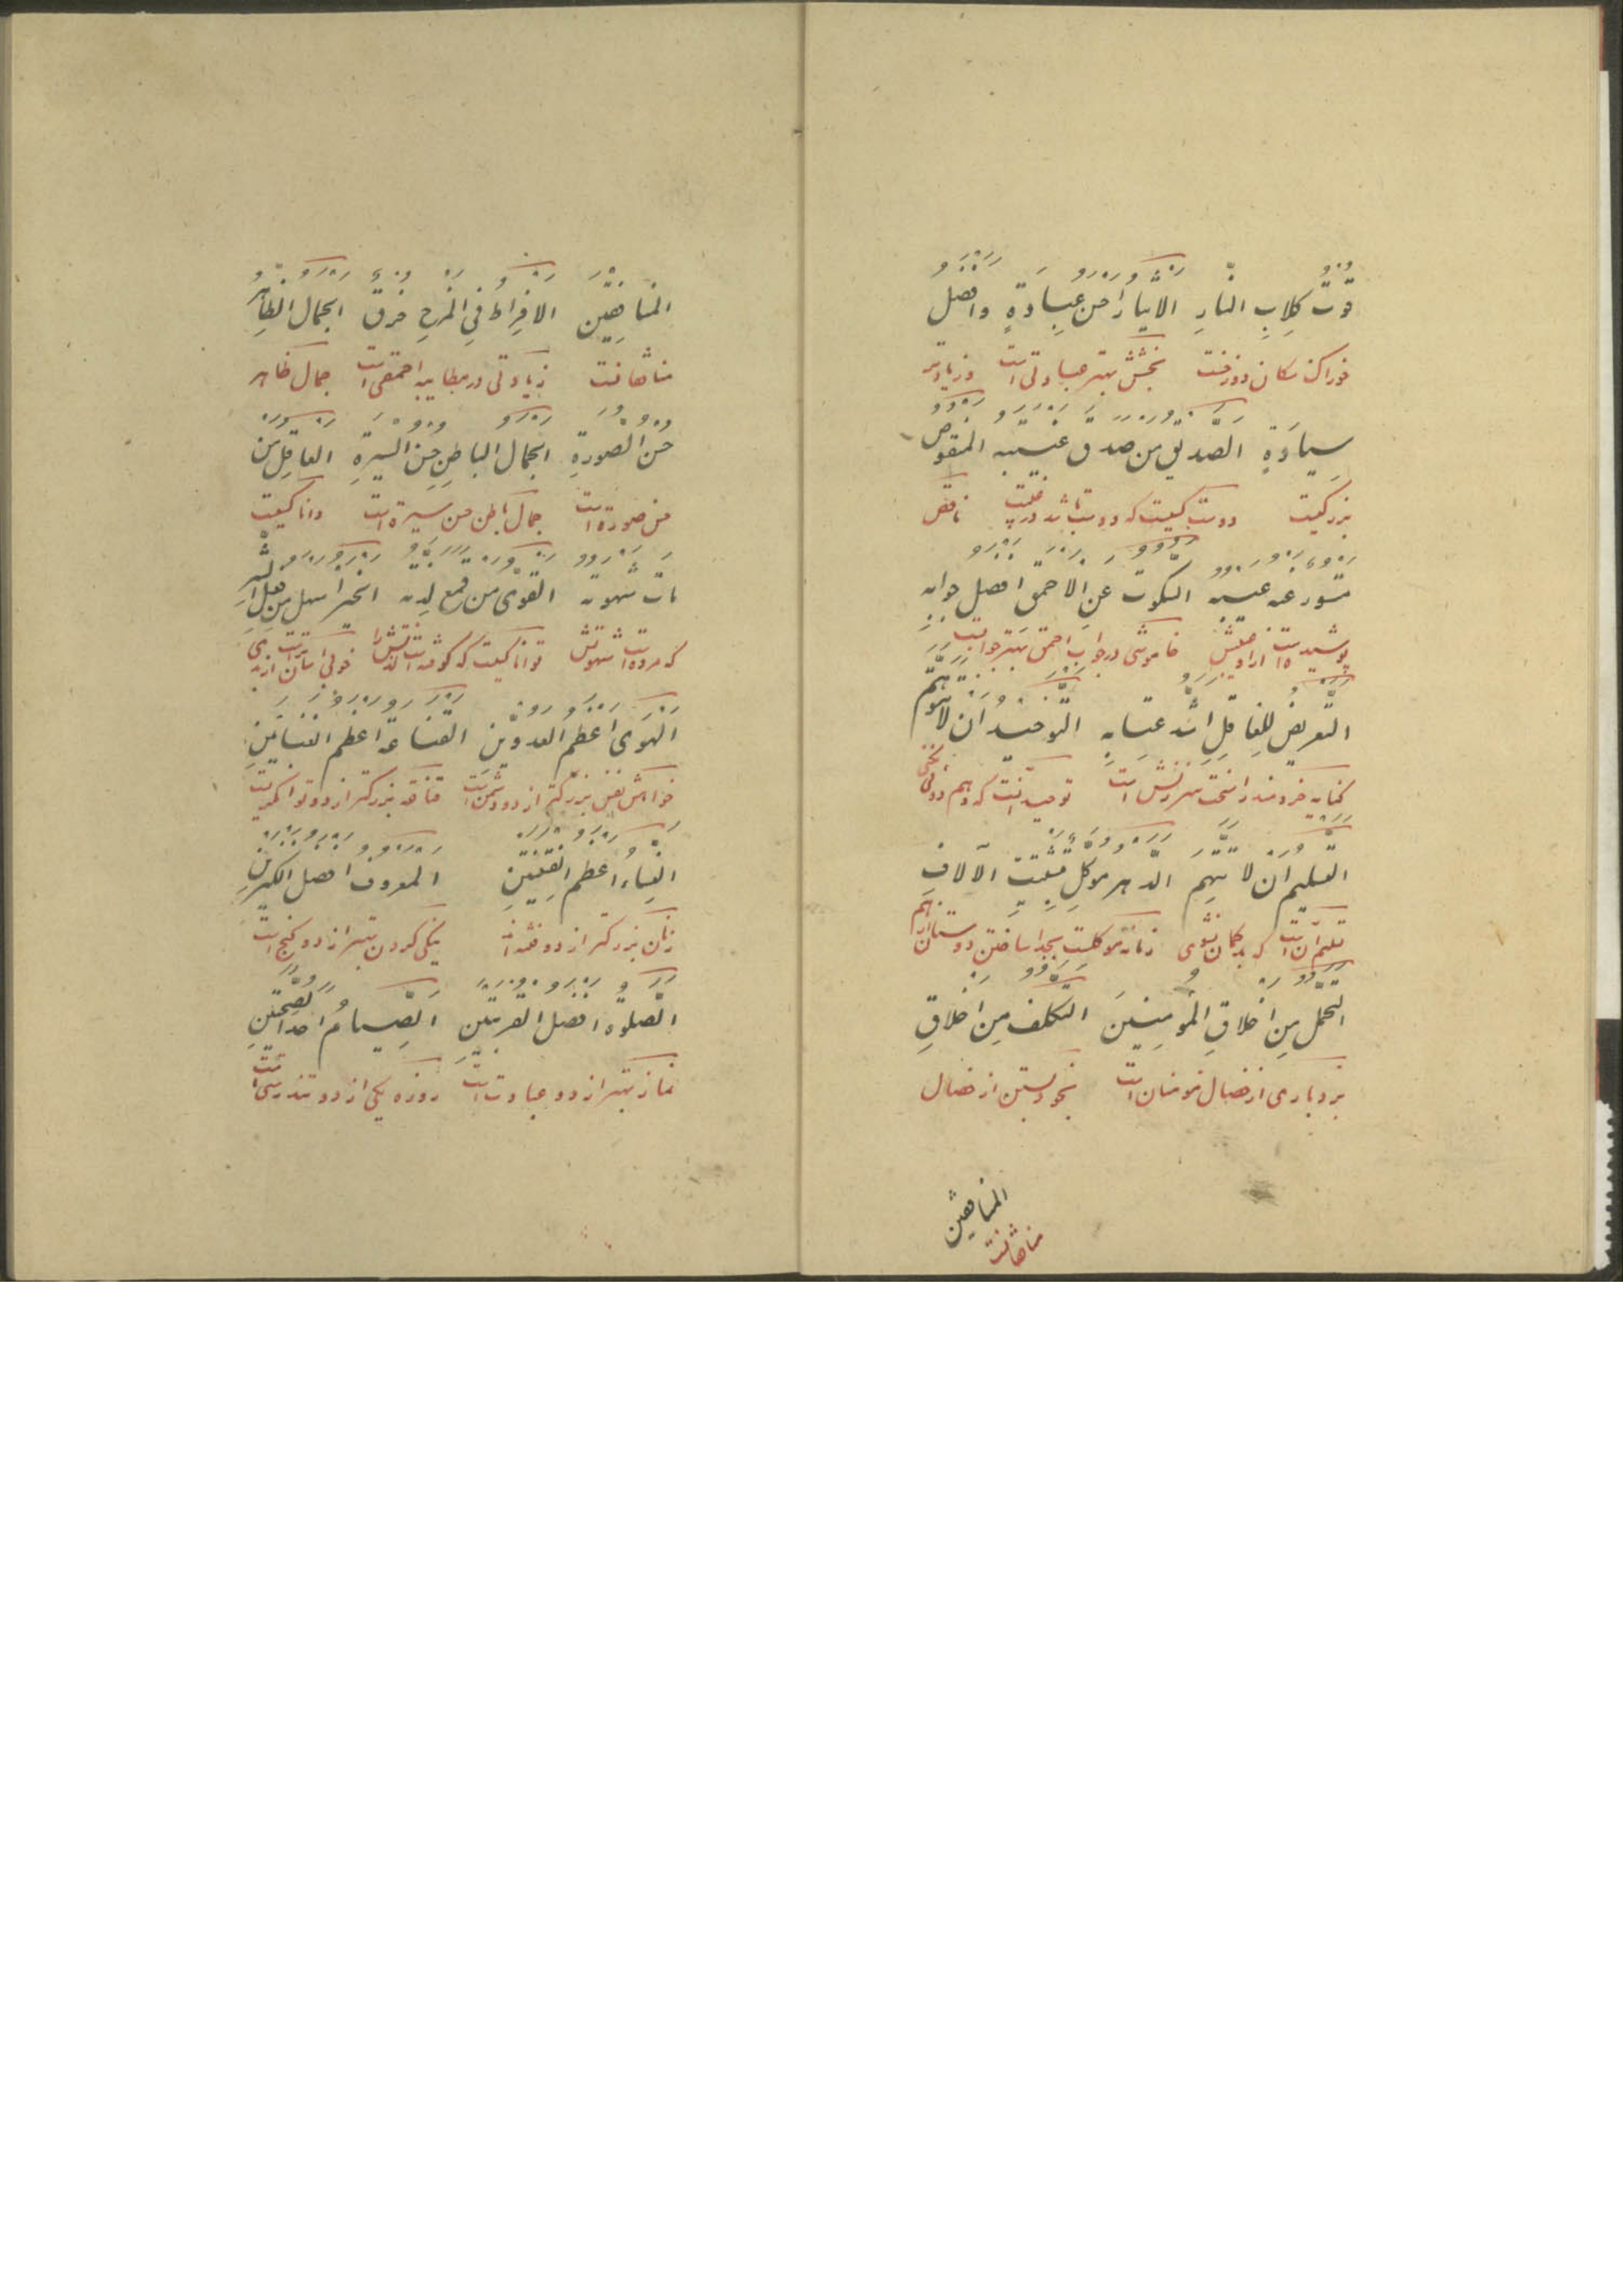 قُوتُ كِلابِ النّارِ الایثارُ احسن عِبادَةٍ وافضل
خوراک سکان دوزخست بخشش بهتر عبادتی است و زیادتر
سِیادَةٍ الصّدیق من صدق غیبته المنقوص
بزرکیست دوست کسیست که دوست باشد در غیبت ناقص
مستور عنه عیبه السکوت عن الاحمق افضل جوابه
پوشیده است از او عیبش خاموشی در جواب احمق بهتر جوابیست
التعریض للعاقل اشد عتابه التوحید ان لا تتوهم
کنایه خردمند را سخت تر سرزنش است توحید آنست که وهم او نکنی
التسلیم ان لا تتهم الدهر موکل بتشتیت الآلاف
تسلیم آن است که بدکمان نشوی زمانه موکلست بجدا ساختن دوستان از هم
التحمل من اخلاقِ المؤمنینَ التکلف من اخلاقِ
بردباری از خصال مومنان است بخود بستن از خصال
المنافقین
منافقانست
المنافقین الافراط فی المزح خرق الجمال الظاهر
منافقانست زیادتی در مطایبه احمقی است جمال ظاهر
حسن الصورةِ الجمال الباطن حسن السیرةِ العاقل من
حسن صورة است جمال باطن حسن سیرة است دانا کسیست
مات شهوته القوی من قمع لذته الخیر اسهل من فعل الشر
که مرده است شهوتش توانا کسیست که کوفته است لذتش را خوبی آسان تر است از بدی
الهوی اعظم العدوین القناعة اعظم الغنائین
خواهش نفس بزرکتر از دو دشمن است قناعة بزرکتر از دو توانکریست
النساء اعظم الفتنتین المعروف افضل الکنزین
زنان بزرکتر از دو فتنه اند نیکی کردن بهتر از دو کنج است
الصلوة افضل القربتین الصیام احد الصحتین
نماز بهتر از دو عبادت است روزه یکی از دو تندرستی است